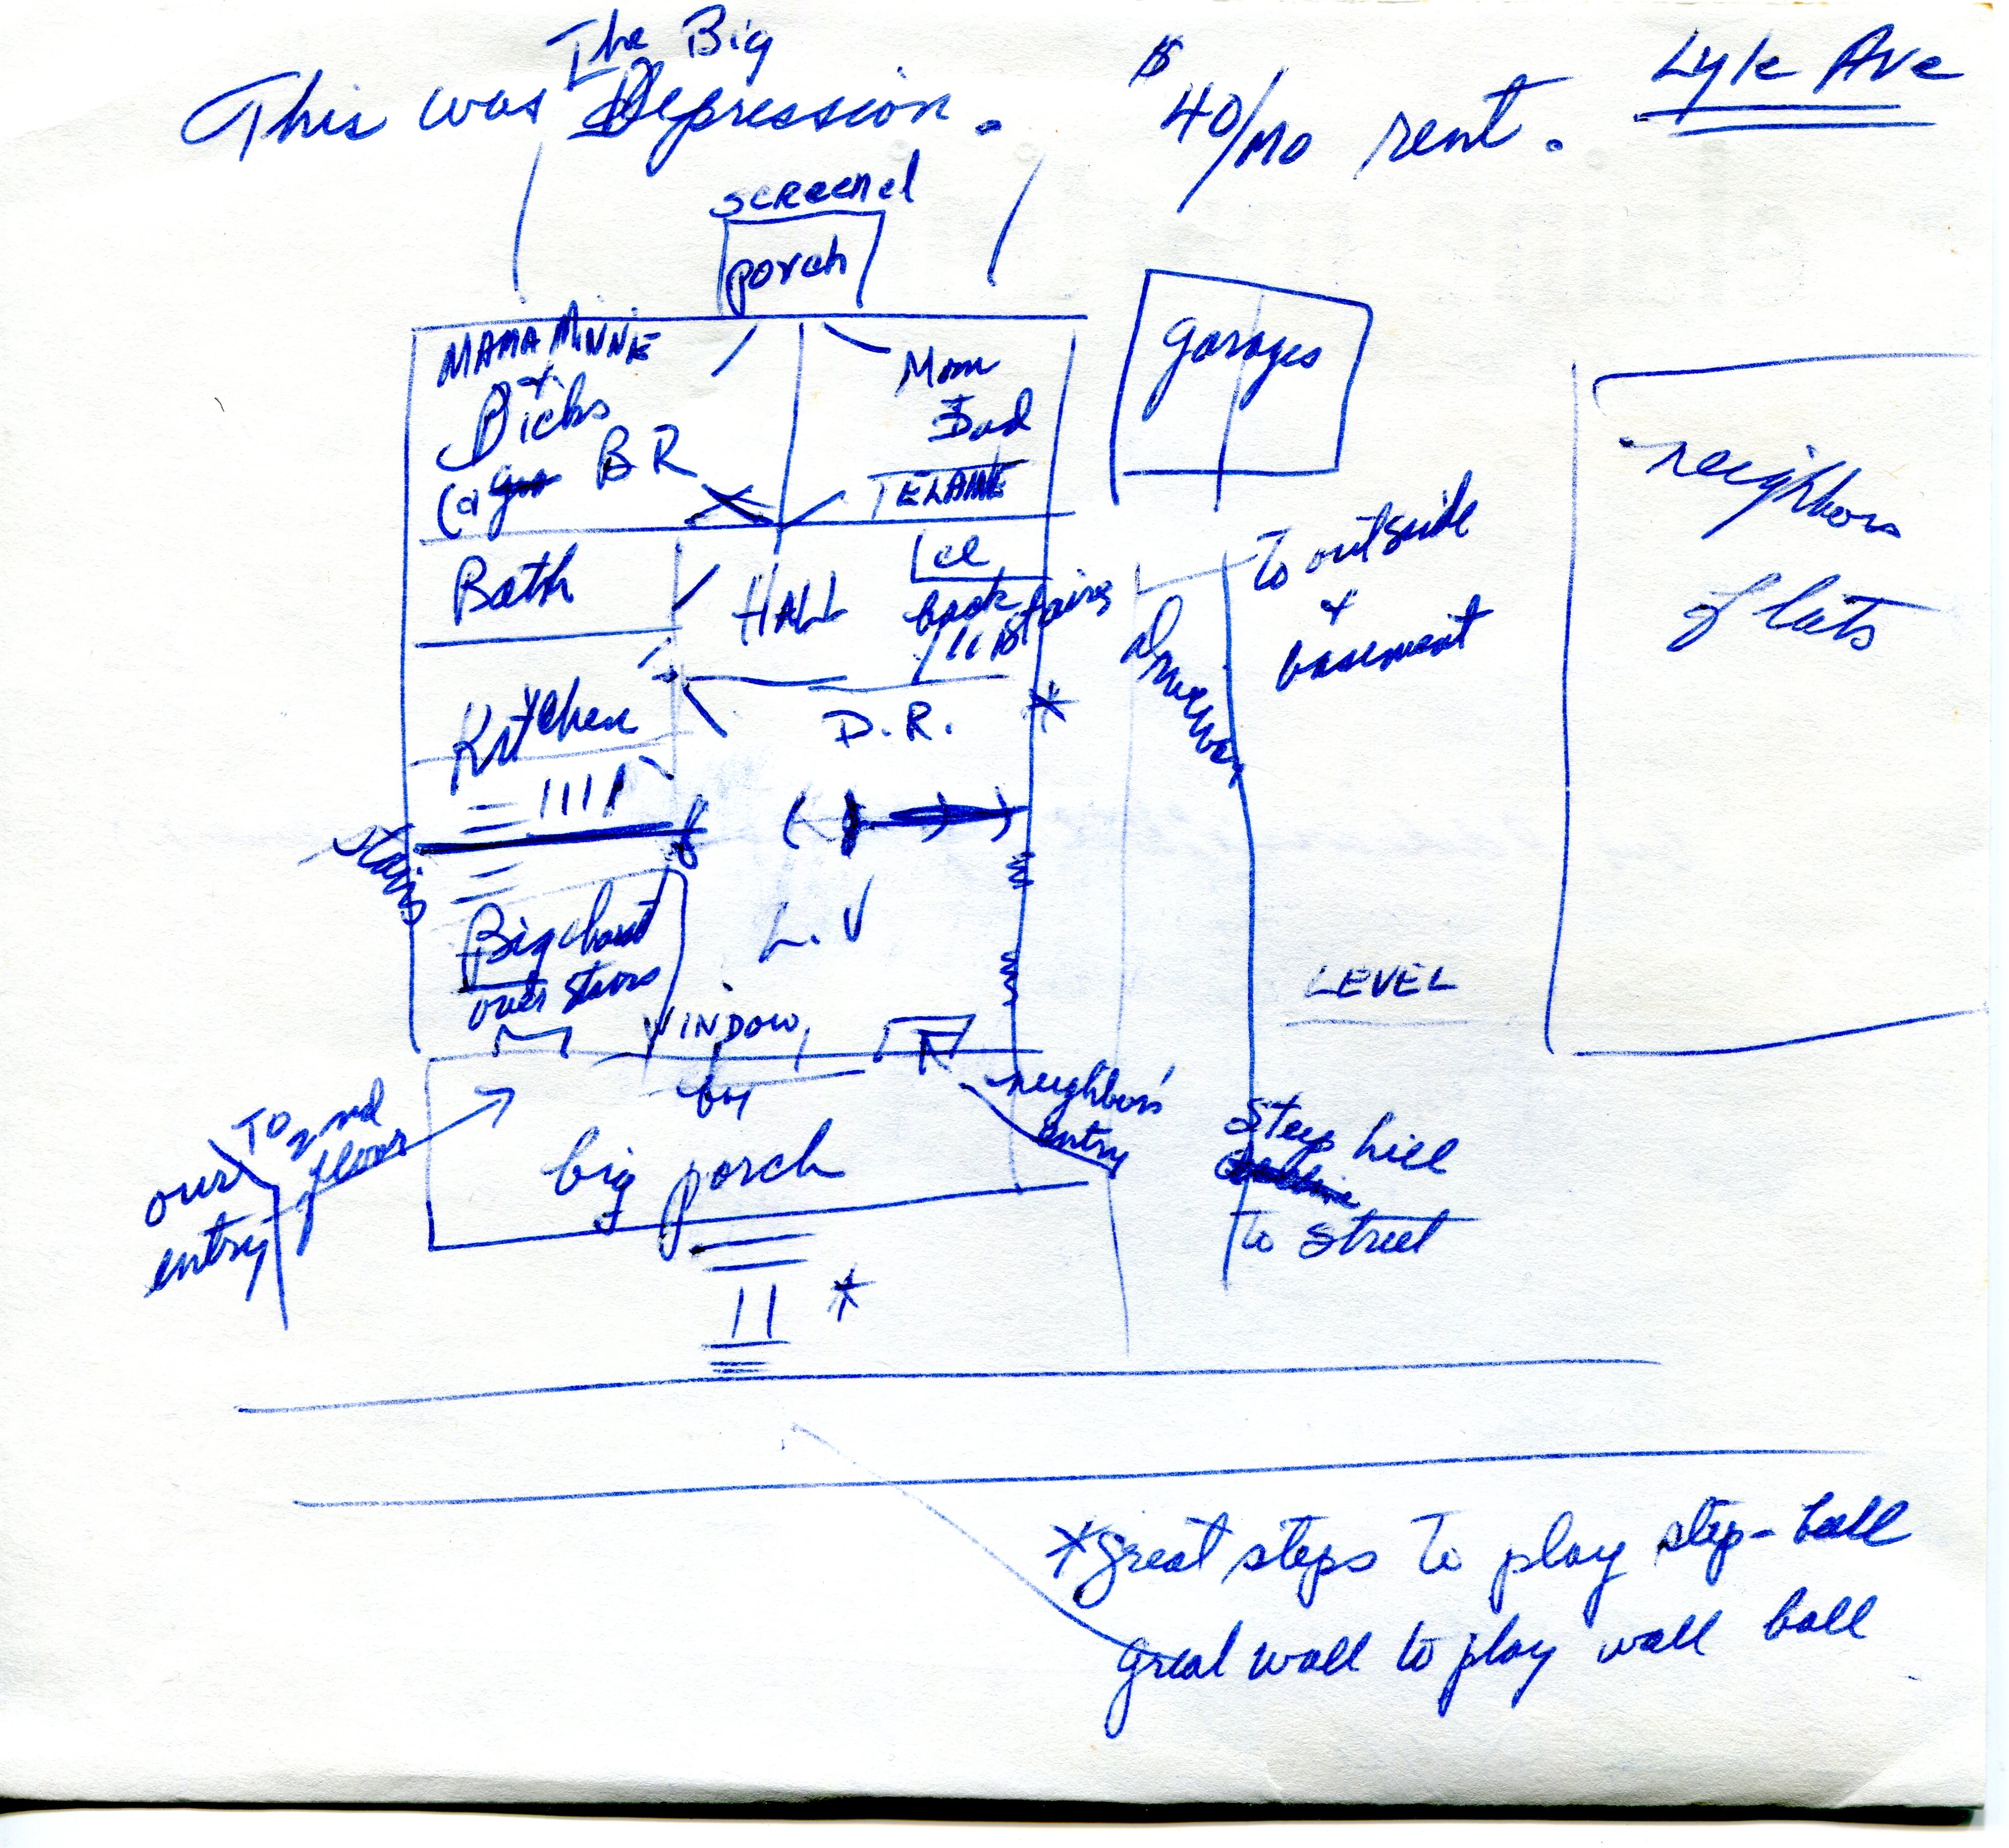 The Big
This was Depression. $40/mo rent. Lyle Ave
screened
porch
MAMA MINNIE
+
Dicks
BR
Mom
Dad
garages
neighbors
flats
Bath
HALL
Ice
back
stairs
To outside
+
basement
driveway
Kitchen
D.R. *
stairs
Big closet
over stairs
L.V
LEVEL
WINDOW
big porch
our
entry
To 2nd
floor
neighbor's
entry
Steep hill
to street
*
*great steps to play step-ball
great wall to play wall ball